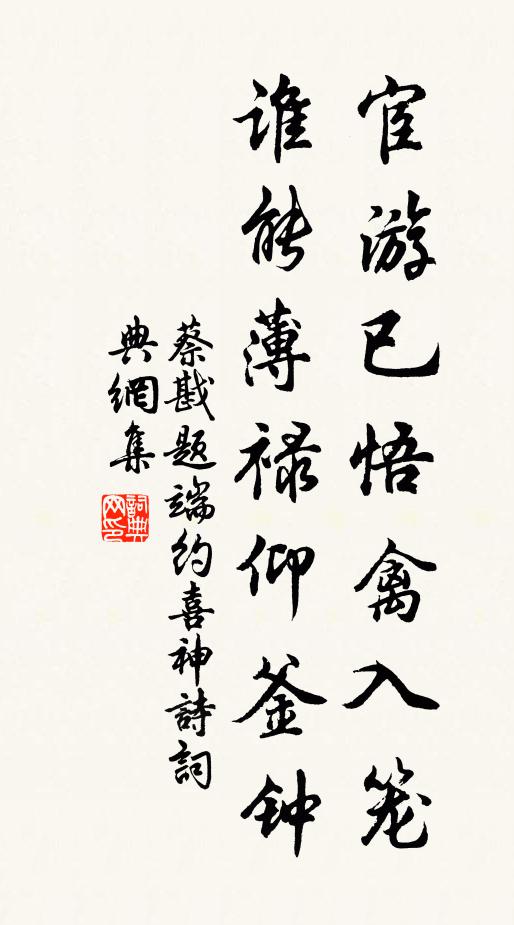 宦游已悟禽入笼
谁能薄禄仰釜钟
蔡戡题端约喜神詩詞
典網集
詞典网印